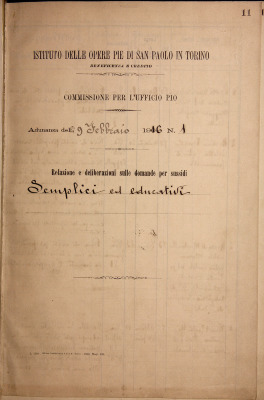 11
ISTITUTO DELLE OPERE PIE DI SAN PAOLO IN TORINO
BENEFICENZA E CREDITO
COMMISSIONE PER L'UFFICIO PIO
Adunanza dell 9 Febbraio 1916 N. 1
Relazione e deliberazioni sulle domande per sussidi
Semplici ed educativi